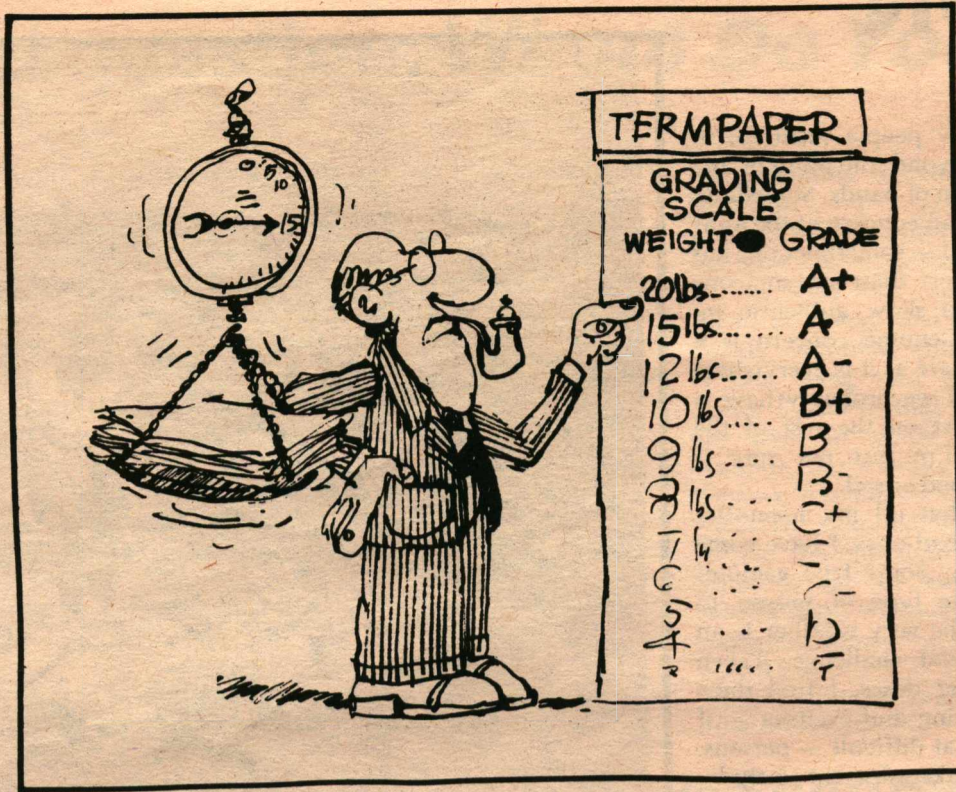 0 5 10
15
TERMPAPER
GRADING
SCALE
WEIGHT GRADE
20 lbs........ A+
15 lbs....... A
12 lbs...... A-
10 lbs..... B+
9 lbs.... B
8 lbs.... B-
7 C+
6
5
4 D